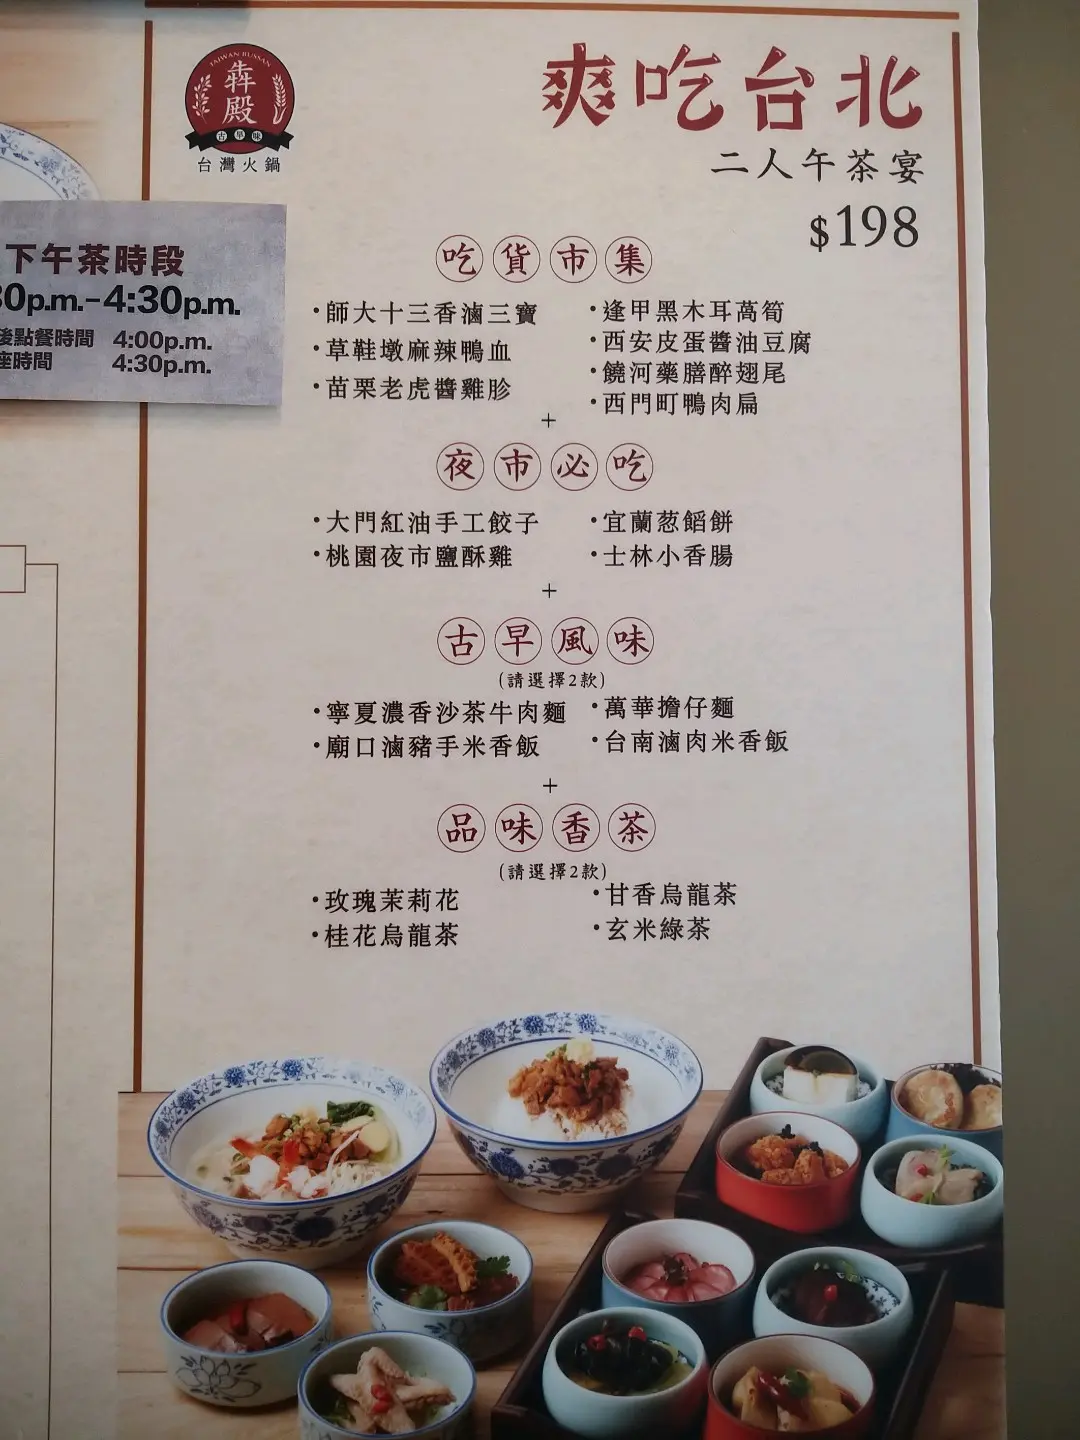 TAIWAN BUSSAN
犇殿
古早味
台灣火鍋
爽吃台北
二人午茶宴
$198
下午茶時段
30p.m.-4:30p.m.
後點餐時間 4:00p.m.
座時間 4:30p.m.
吃貨市集
·師大十三香滷三寶
·草鞋墩麻辣鴨血
·苗栗老虎醬雞胗
·逢甲黑木耳萵筍
·西安皮蛋醬油豆腐
·饒河藥膳醉翅尾
·西門町鴨肉扁
+
夜市必吃
·大門紅油手工餃子
·桃園夜市鹽酥雞
·宜蘭葱餡餅
·士林小香腸
+
古早風味
(請選擇2款)
·寧夏濃香沙茶牛肉麵
·廟口滷豬手米香飯
·萬華擔仔麵
·台南滷肉米香飯
+
品味香茶
(請選擇2款)
·玫瑰茉莉花
·桂花烏龍茶
·甘香烏龍茶
·玄米綠茶